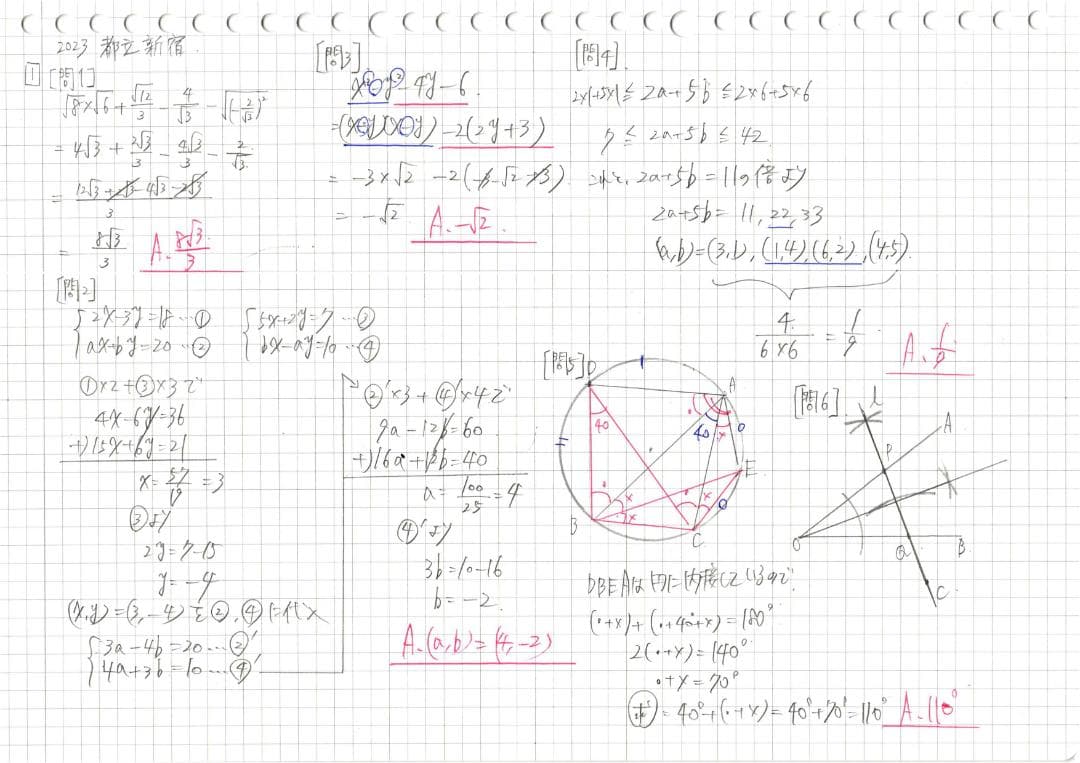 2023 都立新宿.
1 [問1]
√8×√6+√12/3-4/√3-√(-2/√3)²
=4√3+2√3/3-4√3/3-2/√3
=12√3+2√3-4√3-2√3/3
=8√3/3 A.8√3/3
[問2]
{2x-3y=18…①
ax+by=20…②
{5x+2y=7…③
bx-ay=10…④
①×2+③×3で
4x-6y=36
+)15x+6y=21
x=57/19=3
③より
2y=7-15
y=-4
(x,y)=(3,-4)を②,④に代入
{3a-4b=20…②'
4a+3b=10…④'
②'×3+④'×4で
9a-12b=60
+)16a+12b=40
a=100/25=4
④'より
3b=10-16
b=-2.
A.(a,b)=(4,-2)
[問3]
x²-y²-4y-6.
=(x+y)(x-y)-2(2y+3)
=-3×√2 -2(-3-√2+3)
=-√2 A.-√2
[問4].
2×1+5×1≦2a+5b≦2×6+5×6
7≦2a+5b≦42
これと, 2a+5b=11の倍数より
2a+5b=11,22,33
(a,b)=(3,1),(1,4),(6,2),(4,5).
4/6×6=1/9 A.1/9
[問5]
D
A
40
40
×
E
B
C
DBEAは円に内接しているので
(・+×)+(・+40+×)=180°
2(・+×)=140°
・+×=70°
求=40°+(・+×)=40°+70°=110° A.110°
[問6]
l
A
P
O
Q
B
C